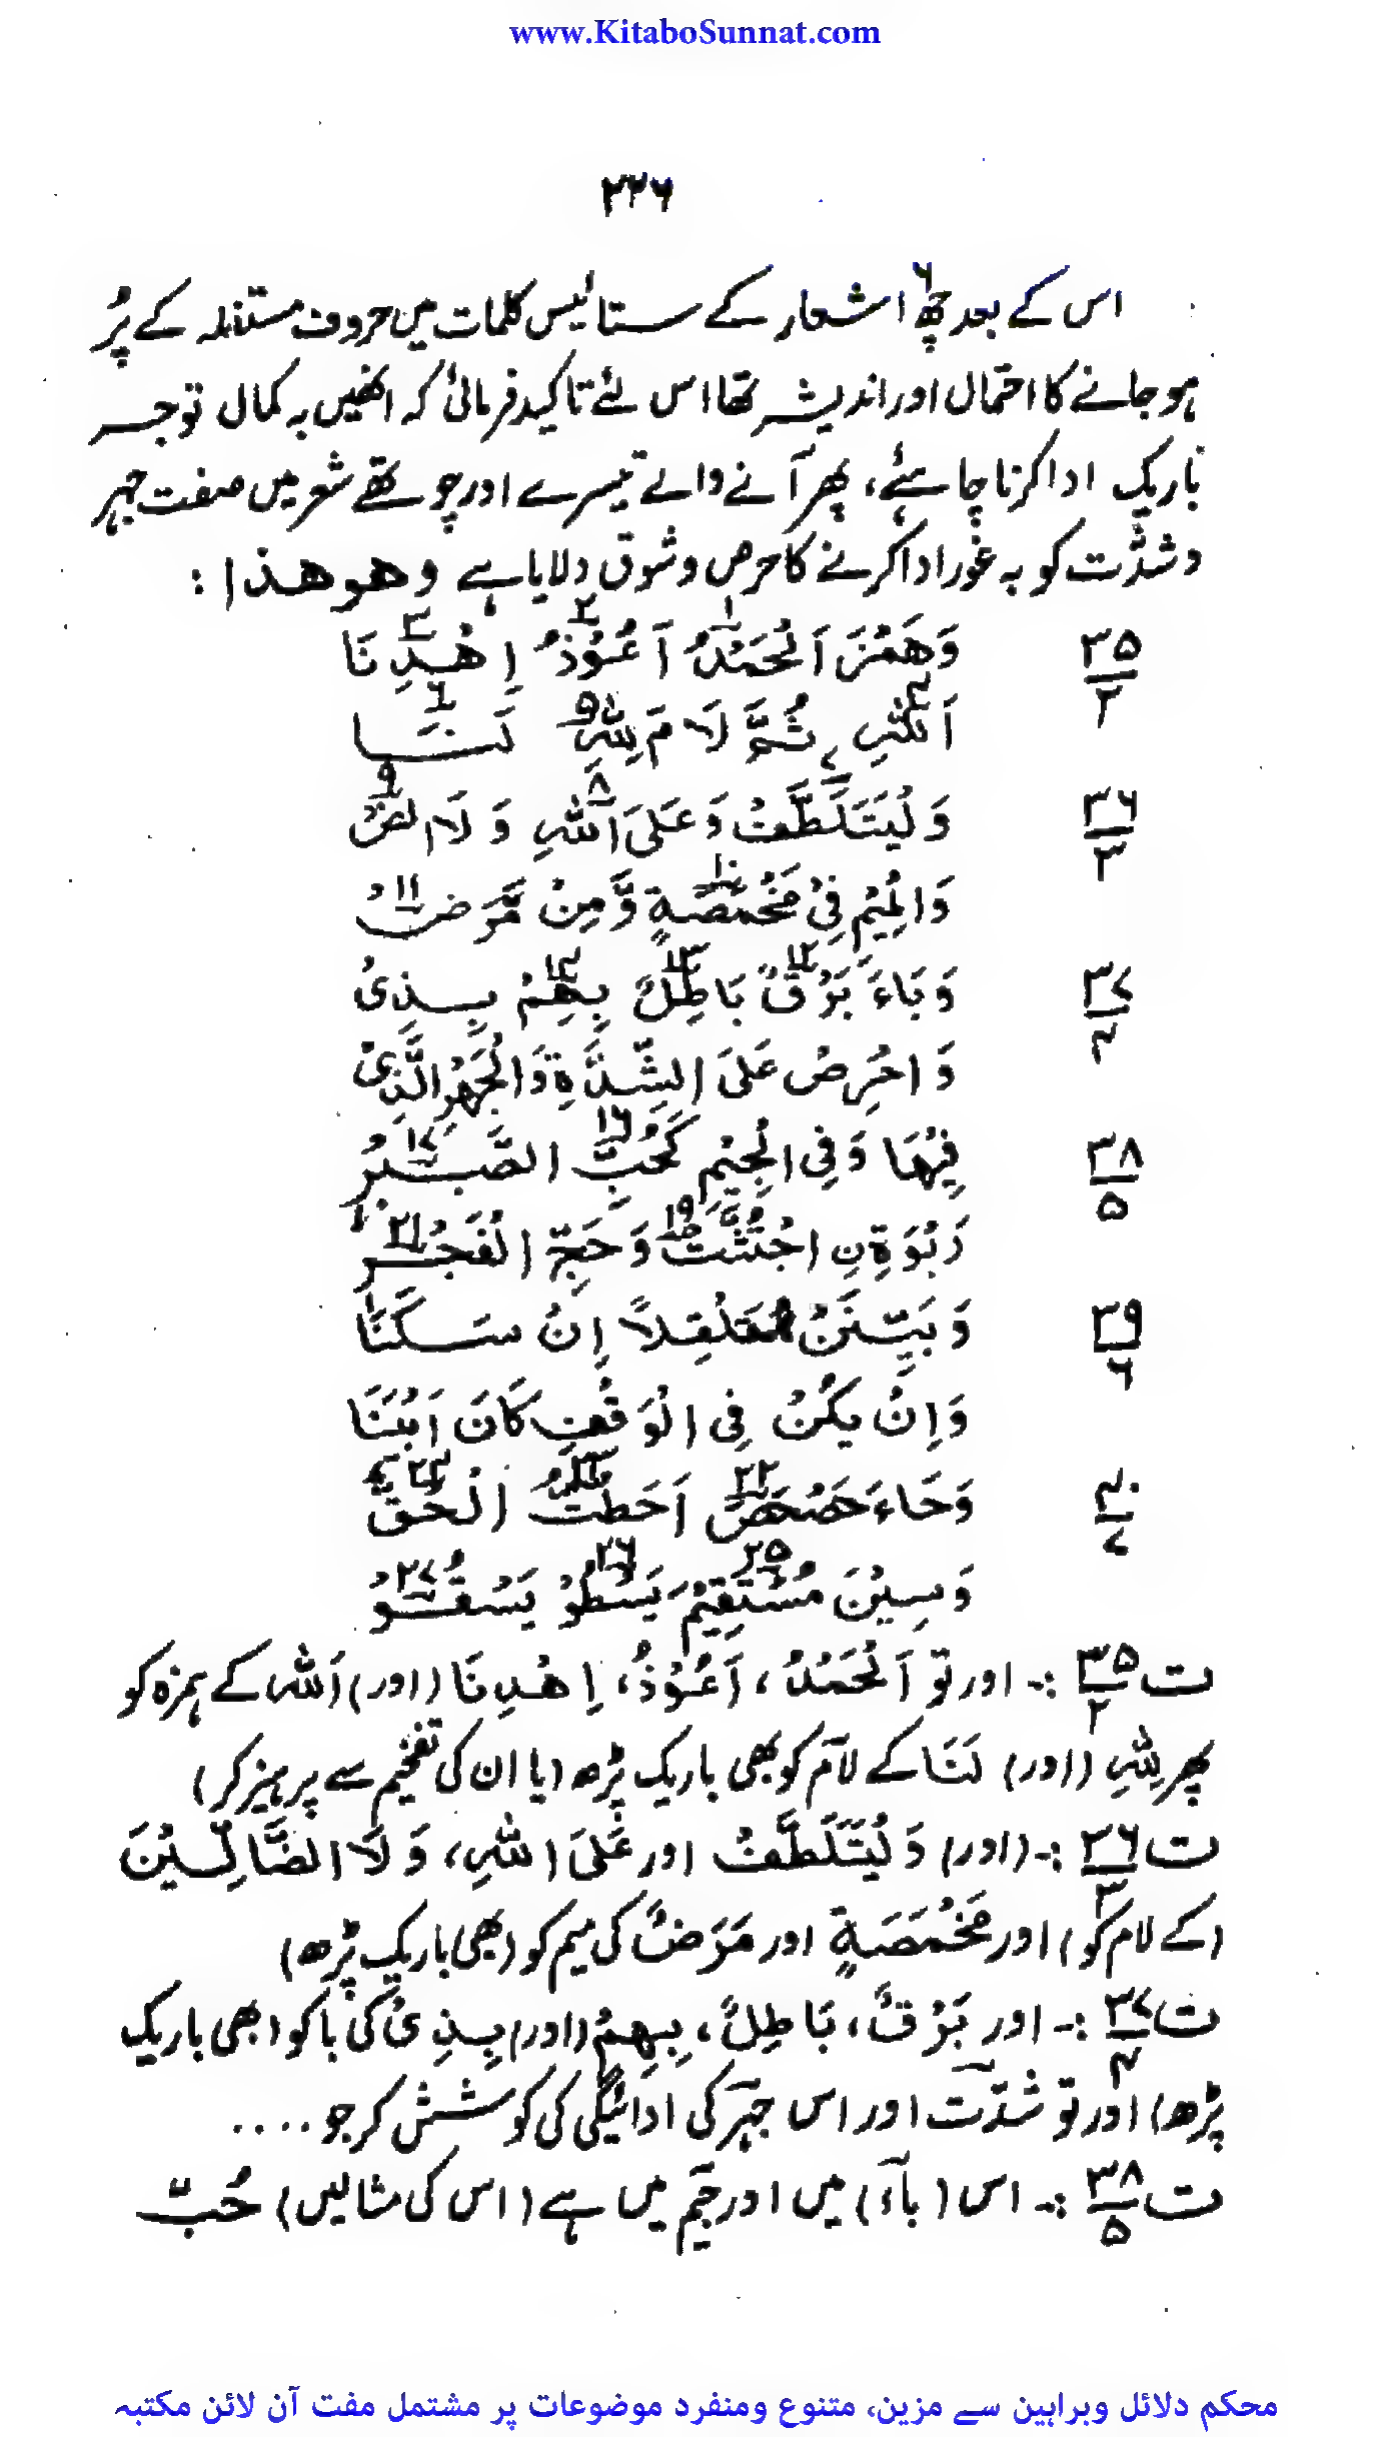 www.KitaboSunnat.com
۲۲۶
اس کے بعد چھ۶ اشعار کے ستائیس کلمات میں حروف مستفلہ کے پُر
ہو جانے کا احتمال اور اندیشہ تھا اس لئے تاکید فرمائی کہ انھیں بہ کمال توجہ
باریک ادا کرنا چاہئے، پھر آنے والے تیسرے اور چوتھے شعر میں صفت جہر
و شدّت کو بہ غور ادا کرنے کا حرص و شوق دلایا ہے وهو هذا :
۳۵/۲ وَهَمْزَ اَلْحَمْدُ۱ اَعُوْذُ۲ اِهْدِنَا۳
اَللّٰهِ۴ ثُمَّ لَامَ لِلّٰهِ۵ لَنَا۶
۳۶/۳ وَلْيَتَلَطَّفْ۷ وَعَلَى اللّٰهِ۸ وَلَا الضْ۹
وَالْمِيْمِ فِىْ مَخْمَصَةٍ۱۰ وَّمِنْ مَّرَضْ۱۱
۳۷/۴ وَبَاءَ بَرْقٌ۱۲ بَاطِلٌ۱۳ بِهِمْ۱۴ بِذِىْ
وَاحْرِصْ عَلَى الشِّدَّةِ وَالْجَهْرِ الَّذِىْ
۳۸/۵ فِيْهَا وَفِى الْجِيْمِ كَحُبِّ۱۶ الصَّبْرُ۱۷
رَبْوَةِنِ اجْتُثَّتْ۱۹ وَحَجِّ الْفَجْرِ۲۱
۳۹/۶ وَبَيِّنَنْ مُقَلْقِلًا اِنْ سَكَنَا
وَاِنْ يَكُنْ فِى الْوَقْفِ كَانَ اَبْيَنَا
۴۰/۷ وَحَاءَ حَصْحَصَ۲۲ اَحَطْتُ۲۳ الْحَقُّ۲۴
وَسِيْنَ مُسْتَقِيْمَ۲۵ يَسْطُوْ۲۶ يَسْقُوْ۲۷
ت ۳۵/۲ :۔ اور تو اَلْحَمْدُ ، اَعُوْذُ، اِهْدِنَا (اور) اَللّٰه کے ہمزہ کو
پھر لِلّٰهِ (اور) لَنَا کے لام کو بھی باریک پڑھ (یا ان کی تفخیم سے پرہیز کر)
ت ۳۶/۳ :۔ (اور) وَلْيَتَلَطَّفْ اور عَلَى اللّٰهِ، وَلَا الضَّالِّيْنَ
(کے لام کو) اور مَخْمَصَةٍ اور مَرَضٌ کی میم کو (بھی باریک پڑھ)
ت ۳۷/۴ :۔ اور بَرْقٌ، بَاطِلٌ، بِهِمْ (اور) بِذِىْ کی با کو (بھی باریک
پڑھ) اور تو شدّت اور اس جہر کی ادائیگی کی کوشش کر جو ....
ت ۳۸/۵ :۔ اس (باء) میں اور جیم میں ہے (اس کی مثالیں) حُبِّ
محکم دلائل وبراہین سے مزین، متنوع ومنفرد موضوعات پر مشتمل مفت آن لائن مکتبہ